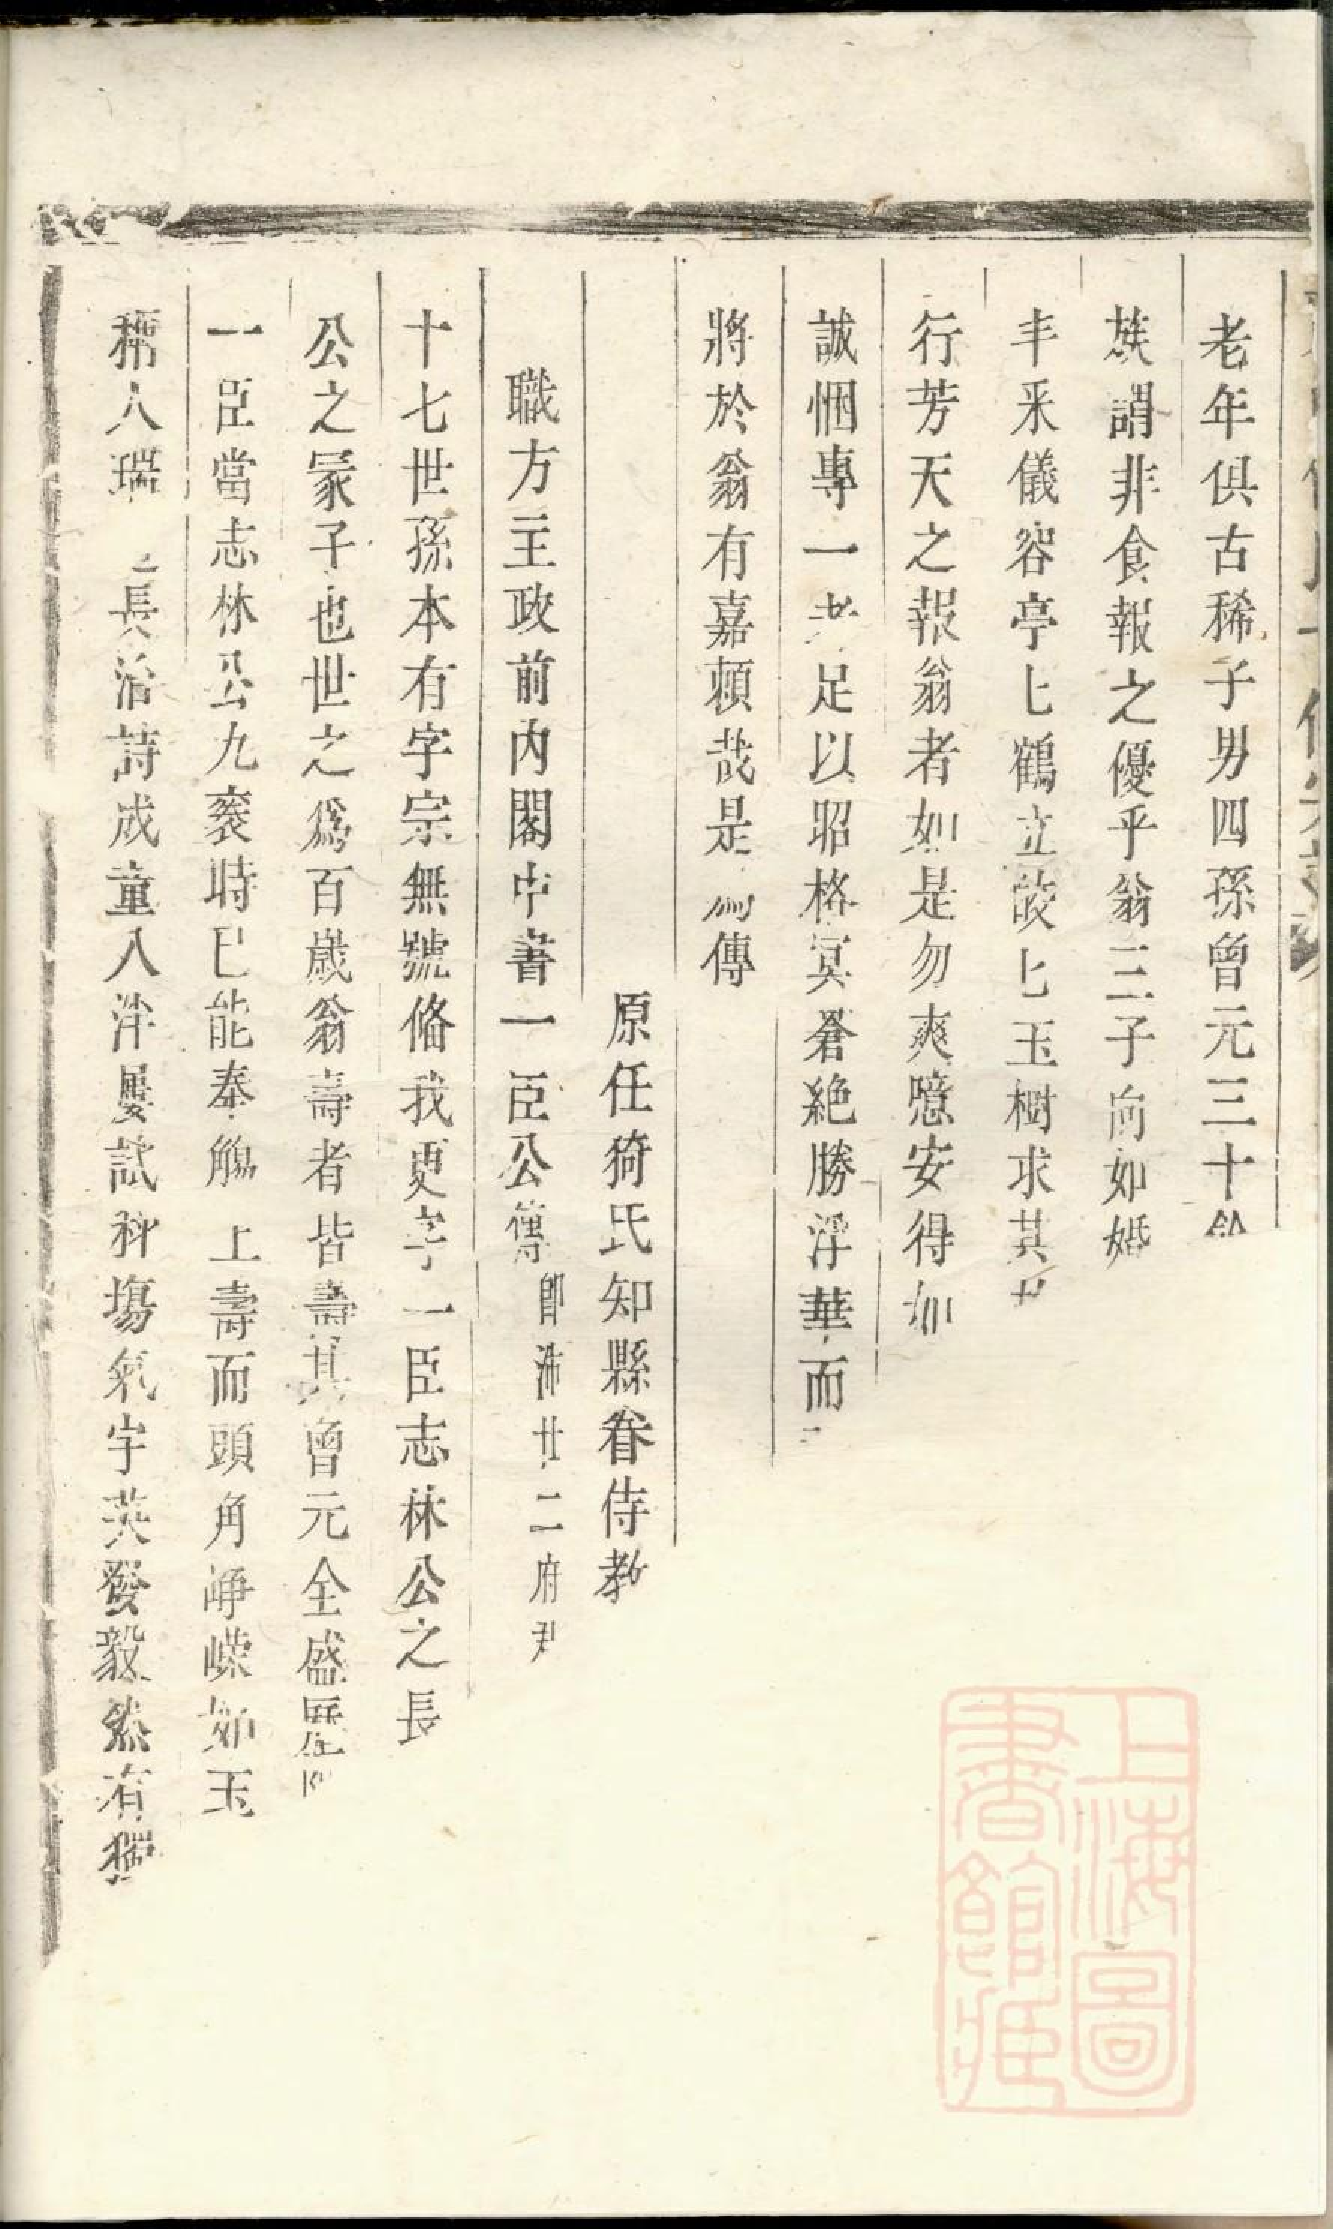 老年俱古稀子男四孫曾元三十餘
族謂非食報之優乎翁三子尚如婚
丰采儀容亭匕鶴立皎匕玉樹求其
行芳天之報翁者如是勿爽噫安得如
誠悃專一者足以昭格冥蒼絶勝浮華而
將於翁有嘉頼哉是為傳
原任猗氏知縣眷侍教
職方主政前內閣中書一臣公傳 即沛廿二府尹
十七世孫本有字宗無號脩我更字一臣志林公之長
公之冡子也世之爲百歲翁壽者皆壽其曾元全盛歷
一臣當志林公九袠時已能奉觴上壽而頭角崢嶸如玉
稱人瑞長治詩成童入泮屢試科塲氣宇英發毅然有獨
上海圖書館藏